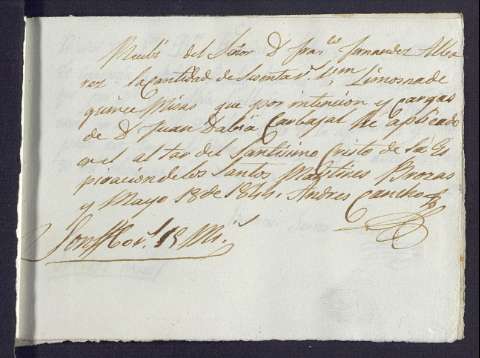 Recibi del Señor D Fran.co Fernandez Alba
rez la cantidad de sesenta r.s v.on Limosna de
quince Misas que por intencion y cargas
de D Juan Dabia Carbajal he aplicado
en el altar del Santisimo Cristo de la Es
piracion de los Santos Martires Brozas
y Mayo 18 de 1844. Andres Cancho
Son 60 r.s 15 Mi.s